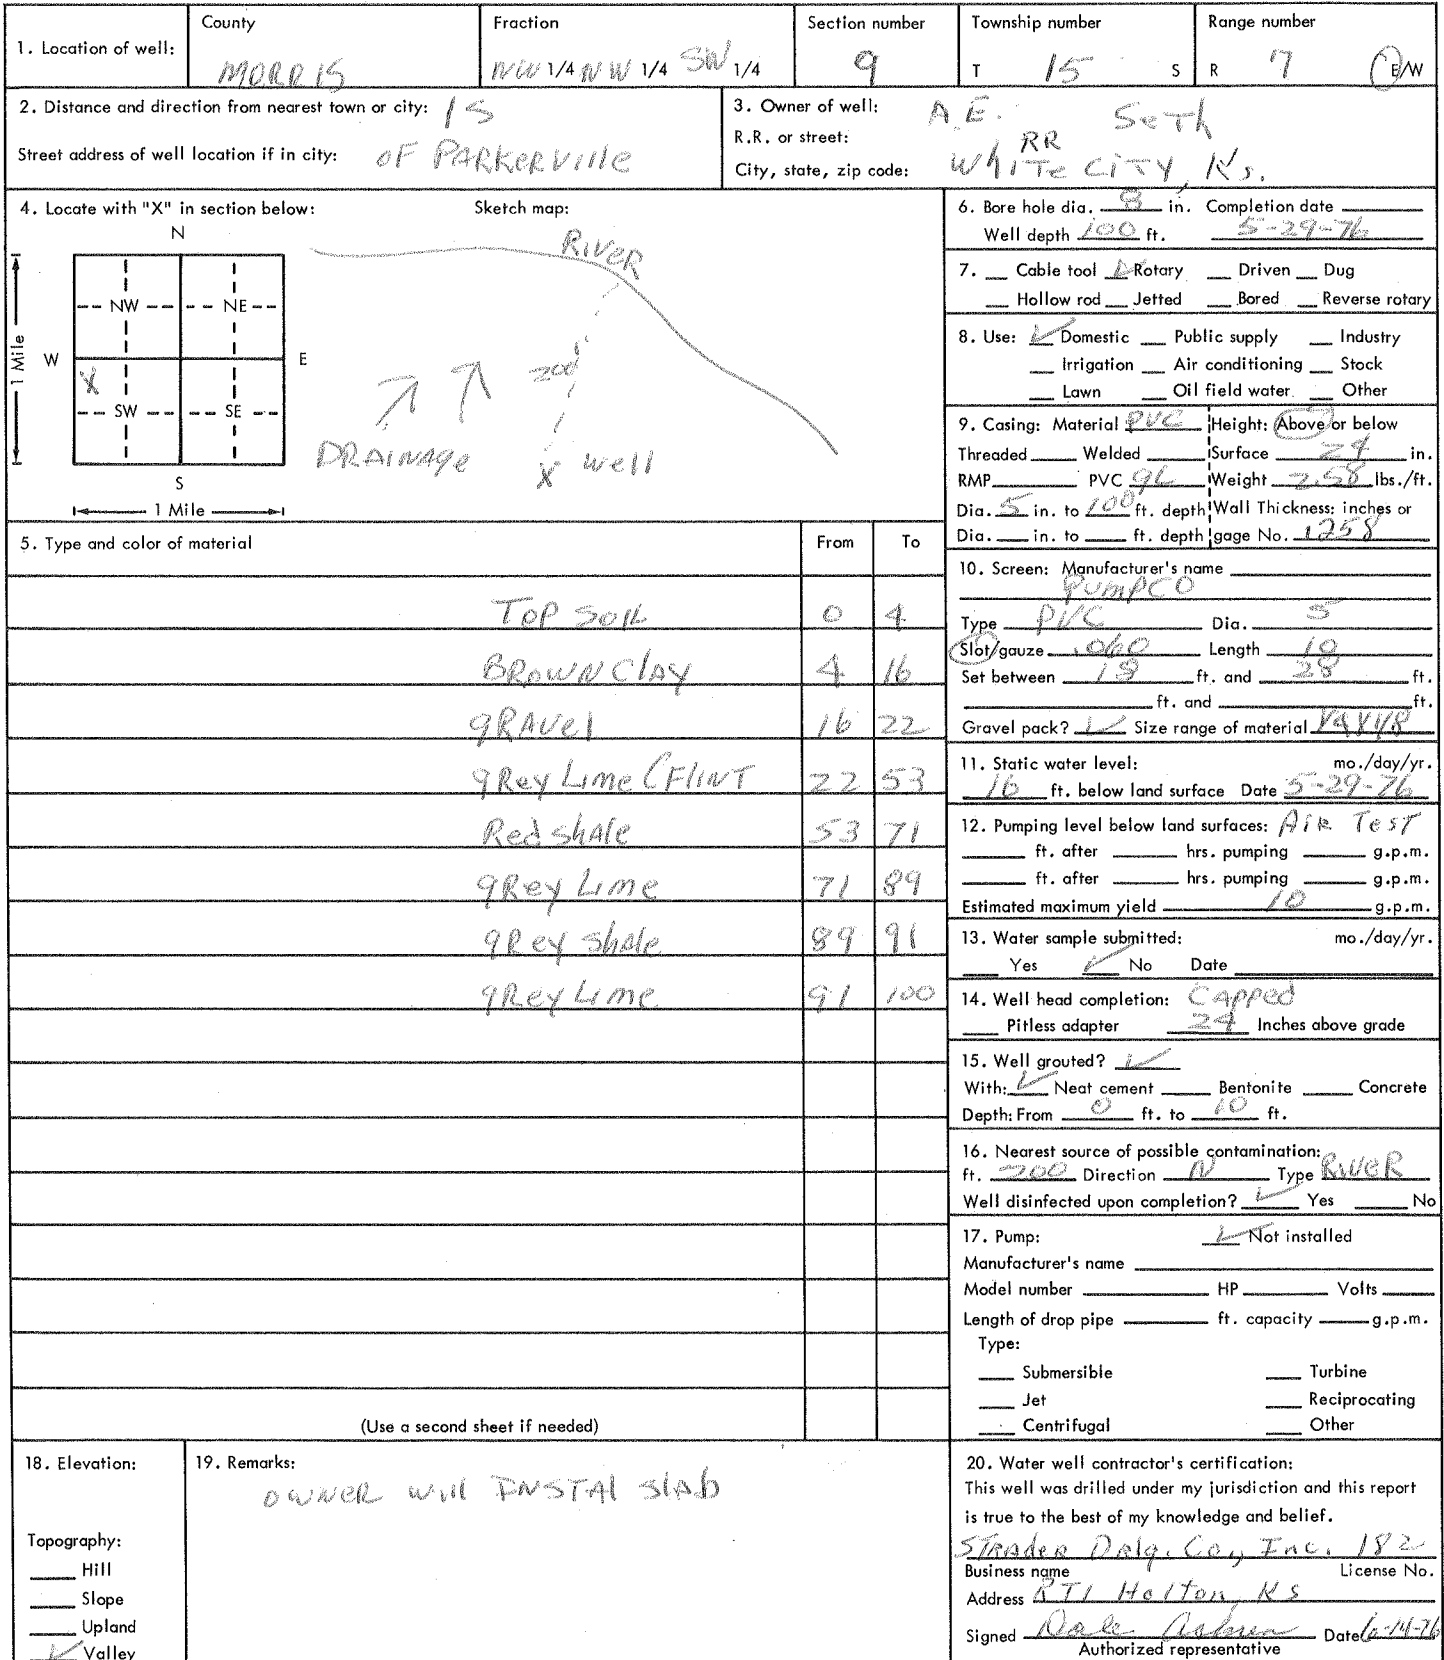 1. Location of well:
County
MORRIS
Fraction
NW 1/4 NW 1/4 SW 1/4
Section number
9
Township number
T 15 S
Range number
R 7 E/W
2. Distance and direction from nearest town or city: 1 S
Street address of well location if in city: OF PARKERVIlle
3. Owner of well: A.E. SeTh
R.R. or street: RR
City, state, zip code: WhiTe CiTY, Ks.
4. Locate with "X" in section below:
Sketch map:
N
NW NE
W E
X
SW SE
S
1 Mile
1 Mile
RIVeR
200'
DRAINAge
X well
5. Type and color of material From To
TOP SOIL 0 4
BROWN ClAY 4 16
gRAVel 16 22
gRey Lime (FlINT 22 53
Red shAle 53 71
gRey Lime 71 89
gRey shale 89 91
gRey Lime 91 100
(Use a second sheet if needed)
6. Bore hole dia. 8 in. Completion date
Well depth 100 ft. 5-29-76
7. Cable tool ✓ Rotary Driven Dug
Hollow rod Jetted Bored Reverse rotary
8. Use: ✓ Domestic Public supply Industry
Irrigation Air conditioning Stock
Lawn Oil field water Other
9. Casing: Material PVC Height: Above or below
Threaded Welded Surface 24 in.
RMP PVC gL Weight 2.58 lbs./ft.
Dia. 5 in. to 100 ft. depth Wall Thickness: inches or
Dia. in. to ft. depth gage No. .1258
10. Screen: Manufacturer's name
PUMPCO
Type PVC Dia. 5
Slot/gauze .060 Length 10
Set between 18 ft. and 28 ft.
ft. and ft.
Gravel pack? ✓ Size range of material 1/4 X 1/8
11. Static water level: mo./day/yr.
16 ft. below land surface Date 5-29-76
12. Pumping level below land surfaces: AiR TesT
ft. after hrs. pumping g.p.m.
ft. after hrs. pumping g.p.m.
Estimated maximum yield 10 g.p.m.
13. Water sample submitted: mo./day/yr.
Yes ✓ No Date
14. Well head completion: CAPPed
Pitless adapter 24 Inches above grade
15. Well grouted? ✓
With: ✓ Neat cement Bentonite Concrete
Depth: From 0 ft. to 10 ft.
16. Nearest source of possible contamination:
ft. 200 Direction N Type RiVeR
Well disinfected upon completion? ✓ Yes No
17. Pump: ✓ Not installed
Manufacturer's name
Model number HP Volts
Length of drop pipe ft. capacity g.p.m.
Type:
Submersible Turbine
Jet Reciprocating
Centrifugal Other
18. Elevation:
Topography:
Hill
Slope
Upland
✓ Valley
19. Remarks:
OWNER will INSTAl slAb
20. Water well contractor's certification:
This well was drilled under my jurisdiction and this report
is true to the best of my knowledge and belief.
STRADeR DRlg. Co., Inc. 182
Business name License No.
Address RT1 Holton, KS
Signed Dale Date 6-14-76
Authorized representative